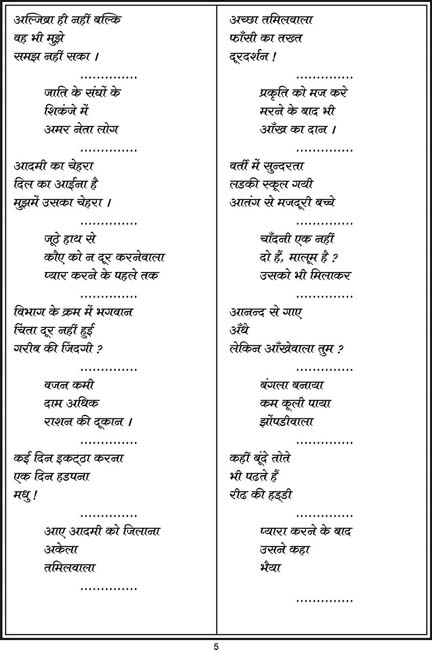 अल्जिब्रा ही नहीं बल्कि
वह भी मुझे
समझ नहीं सका ।
..............
जाति के संघों के
शिकंजे में
अमर नेता लोग
..............
आदमी का चेहरा
दिल का आईना है
मुझमें उसका चेहरा ।
..............
जूठे हाथ से
कौए को न दूर करनेवाला
प्यार करने के पहले तक
..............
विभाग के क्रम में भगवान
चिंता दूर नहीं हुई
गरीब की जिंदगी ?
..............
वजन कमी
दाम अधिक
राशन की दूकान ।
..............
कई दिन इकट्ठा करना
एक दिन हडपना
मधु !
..............
आए आदमी को जिलाना
अकेला
तमिलवाला
..............
अच्छा तमिलवाला
फाँसी का तख्त
दूरदर्शन !
..............
प्रकृति को मज करे
मरने के बाद भी
आँख का दान ।
..............
वर्ती में सुन्दरता
लडकी स्कूल गयी
आतंग से मजदूरी बच्चे
..............
चाँदनी एक नहीं
दो हैं, मालूम है ?
उसको भी मिलाकर
..............
आनन्द से गाए
अँधे
लेकिन आँखेवाला तुम ?
..............
बंगला बनाया
कम कूली पाया
झोंपडीवाला
..............
कहीं बूंदे तोते
भी पढते हैं
रीढ की हड्डी
..............
प्यारा करने के बाद
उसने कहा
भैया
..............
5